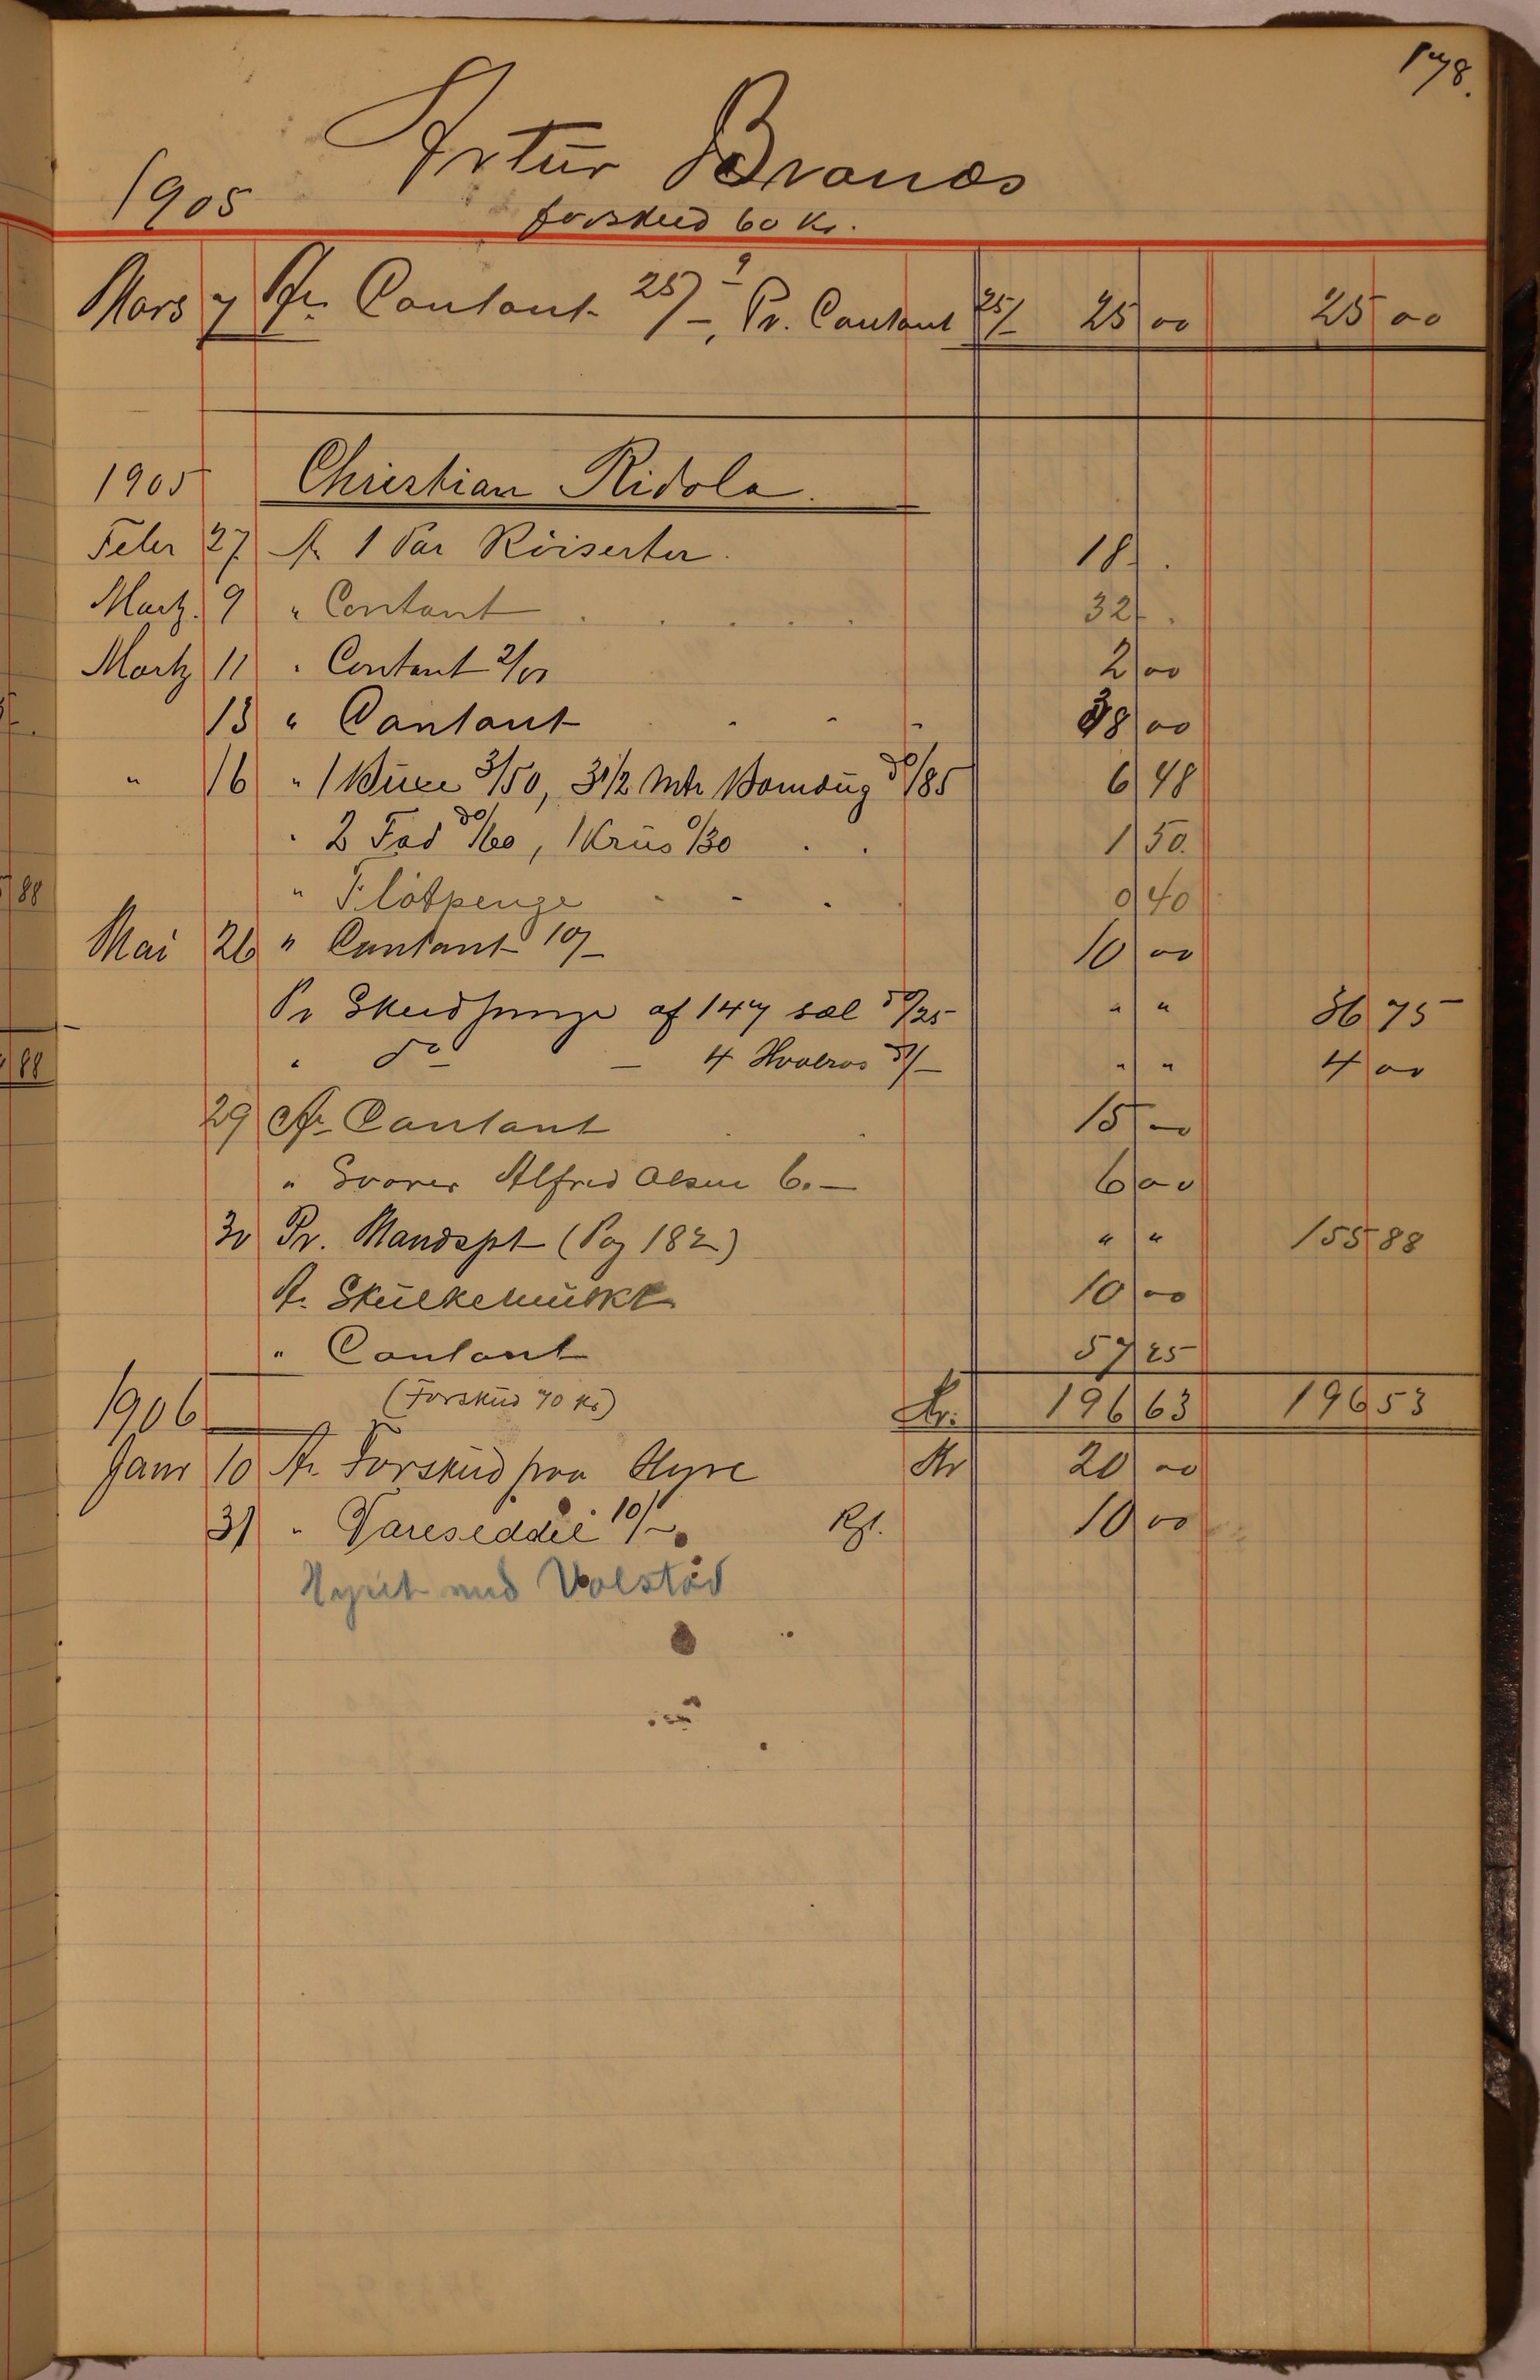 178.
Artur Branås
1905
forskud 60 Kr.
Mars 7 An Contant 25/-, 9 Pr. Contant 25/- 25 00 25 00
1905 Christian Ridola.
Febr 27 An 1 Par Röiserter. 18 .
Martz. 9 " Contant . . . . . 32 .
Martz 11 " Contant 2/00 2 00
13 " Contant - - - 38 00
" 16 " 1 Buxe 3/50, 3 1/2 Mtr Bomdüg do/85 6 48
" 2 Fad do/60, 1 Krüs 0/30 . . 1 50
" Flötpenge - - . 0 40
Mai 26 " Contant 10/- 10 00
Pr Skudpenge af 147 sæl do/25 " " 36 75
" do - 4 Hvalros do/- " " 4 00
29 An Contant . . 15 00
" Svarer Alfred Olsen 6.- 6 00
30 Pr. Mandspt (Pag 182) " " 155 88
An 10 00
" Contant 57 25
1906 (Forskud 70 Kr) Kr. 196 63 196 53
Janr 10 An Forskud paa Hyre Kr 20 00
31 " Vareseddel 10/- Kpt. 10 00
Hyret med Volstad
88
88